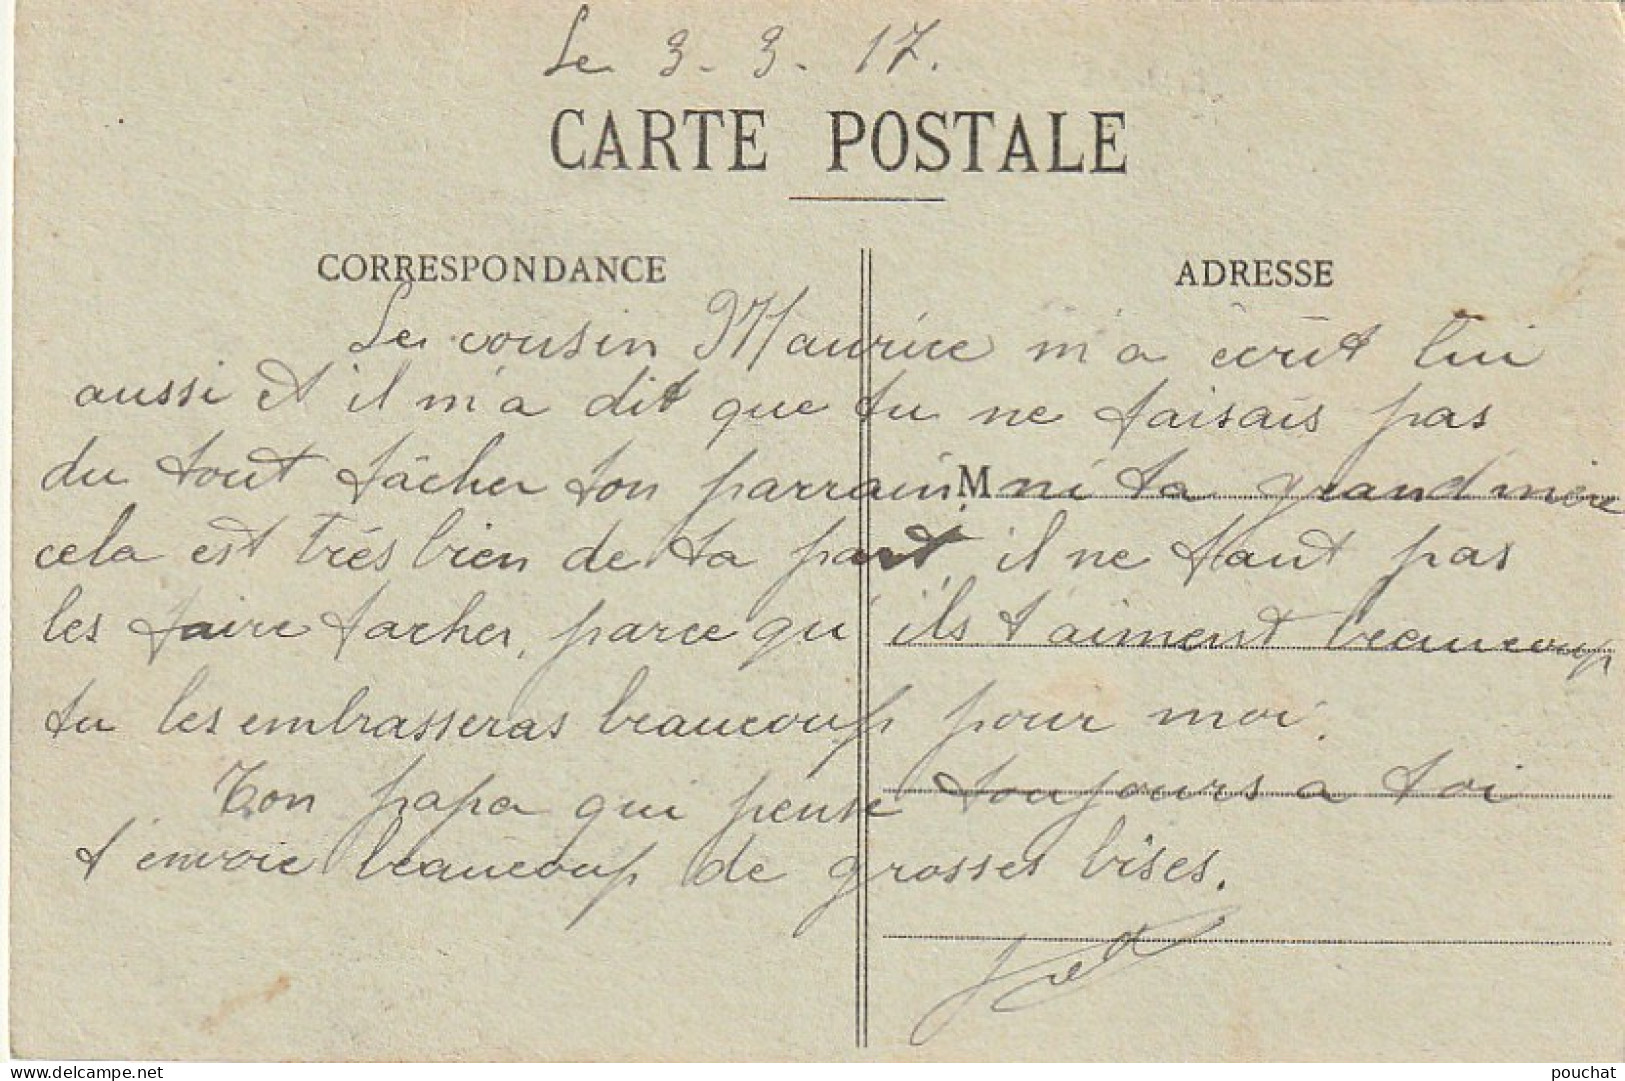 Le 3-3-17.
CARTE POSTALE
CORRESPONDANCE
ADRESSE
Le cousin Maurice m'a écrit lui
aussi et il m'a dit que tu ne faisais pas
du tout fâcher ton parrain M ni ta grand mère
cela est très bien de ta part, il ne faut pas
les faire facher, parce qu'ils t'aiment beaucoup
tu les embrasseras beaucoup pour moi.
Ton papa qui pense toujours a toi
t'envoie beaucoup de grosses bises.
www.delcampe.net
pouchat